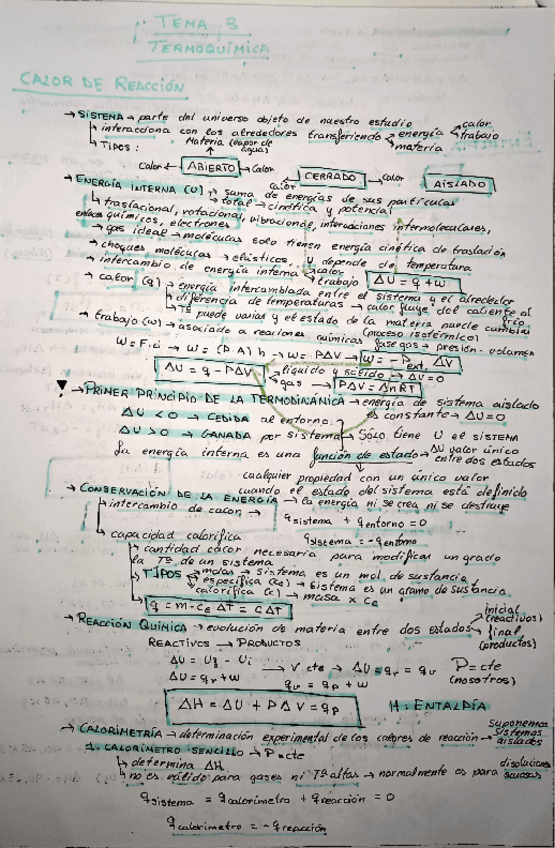 TEMA 3
TERMOQUÍMICA
CALOR DE REACCIÓN
→ SISTEMA → parte del universo objeto de nuestro estudio
↳ interacciona con los alrededores transfiriendo → energía → calor
trabajo
materia
↳ TIPOS: Materia (vapor de agua)
Calor ← ABIERTO → Calor
calor ← CERRADO → calor
AISLADO
→ ENERGÍA INTERNA (U) → suma de energías de sus partículas
↳ total → cinética y potencial
↳ traslacional, rotacional, vibracional, interacciones intermoleculares,
enlaces químicos, electrones
→ gas ideal → moléculas solo tienen energía cinética de traslación
→ choques moléculas → elásticos, U depende de temperatura
→ intercambio de energía interna → calor
trabajo ΔU = q + w
→ calor (q) → energía intercambiada entre el sistema y el alrededor
↳ diferencia de temperaturas → calor fluye del caliente al frío
↳ Tª puede variar y el estado de la materia puede cambiar
(proceso isotérmico)
→ trabajo (w) → asociado a reacciones químicas fase gas → presión-volumen
W = F·d → W = (P·A) h → W = PΔV → W = -P ext. ΔV
ΔU = q - PΔV → líquido y sólido → ΔU = 0
gas → PΔV = ΔnRT
▼ → PRIMER PRINCIPIO DE LA TERMODINÁMICA → energía de sistema aislado
es constante → ΔU = 0
ΔU < 0 → CEDIDA al entorno
ΔU > 0 → GANADA por sistema → Sólo tiene U el SISTEMA
La energía interna es una función de estado → ΔU valor único
entre dos estados
cualquier propiedad con un único valor
cuando el estado del sistema está definido
→ CONSERVACIÓN DE LA ENERGÍA → la energía ni se crea ni se destruye
↳ intercambio de calor → q sistema + q entorno = 0
q sistema = - q entorno
↳ capacidad calorífica
↳ cantidad calor necesaria para modificar un grado
la Tª de un sistema
↳ TIPOS → molar → sistema es un mol de sustancia
específica (ce) → sistema es un gramo de sustancia
calorífica (c) → masa x ce
↳ q = m·ce ΔT = CΔT
→ REACCIÓN QUÍMICA → evolución de materia entre dos estados → inicial
(reactivos)
final
(productos)
REACTIVOS → PRODUCTOS
ΔU = Uf - Ui → V cte → ΔU = qr = qv P = cte
ΔU = qr + w qv = qp + w (nosotros)
ΔH = ΔU + PΔV = qp H: ENTALPÍA
→ CALORIMETRÍA → determinación experimental de los calores de reacción → Suponemos
sistemas
aislados
1. CALORÍMETRO SENCILLO → P = cte
↳ determina ΔH
↳ no es válido para gases ni Tª altas → normalmente es para disoluciones
acuosas
q sistema = q calorímetro + q reacción = 0
q calorímetro = - q reacción